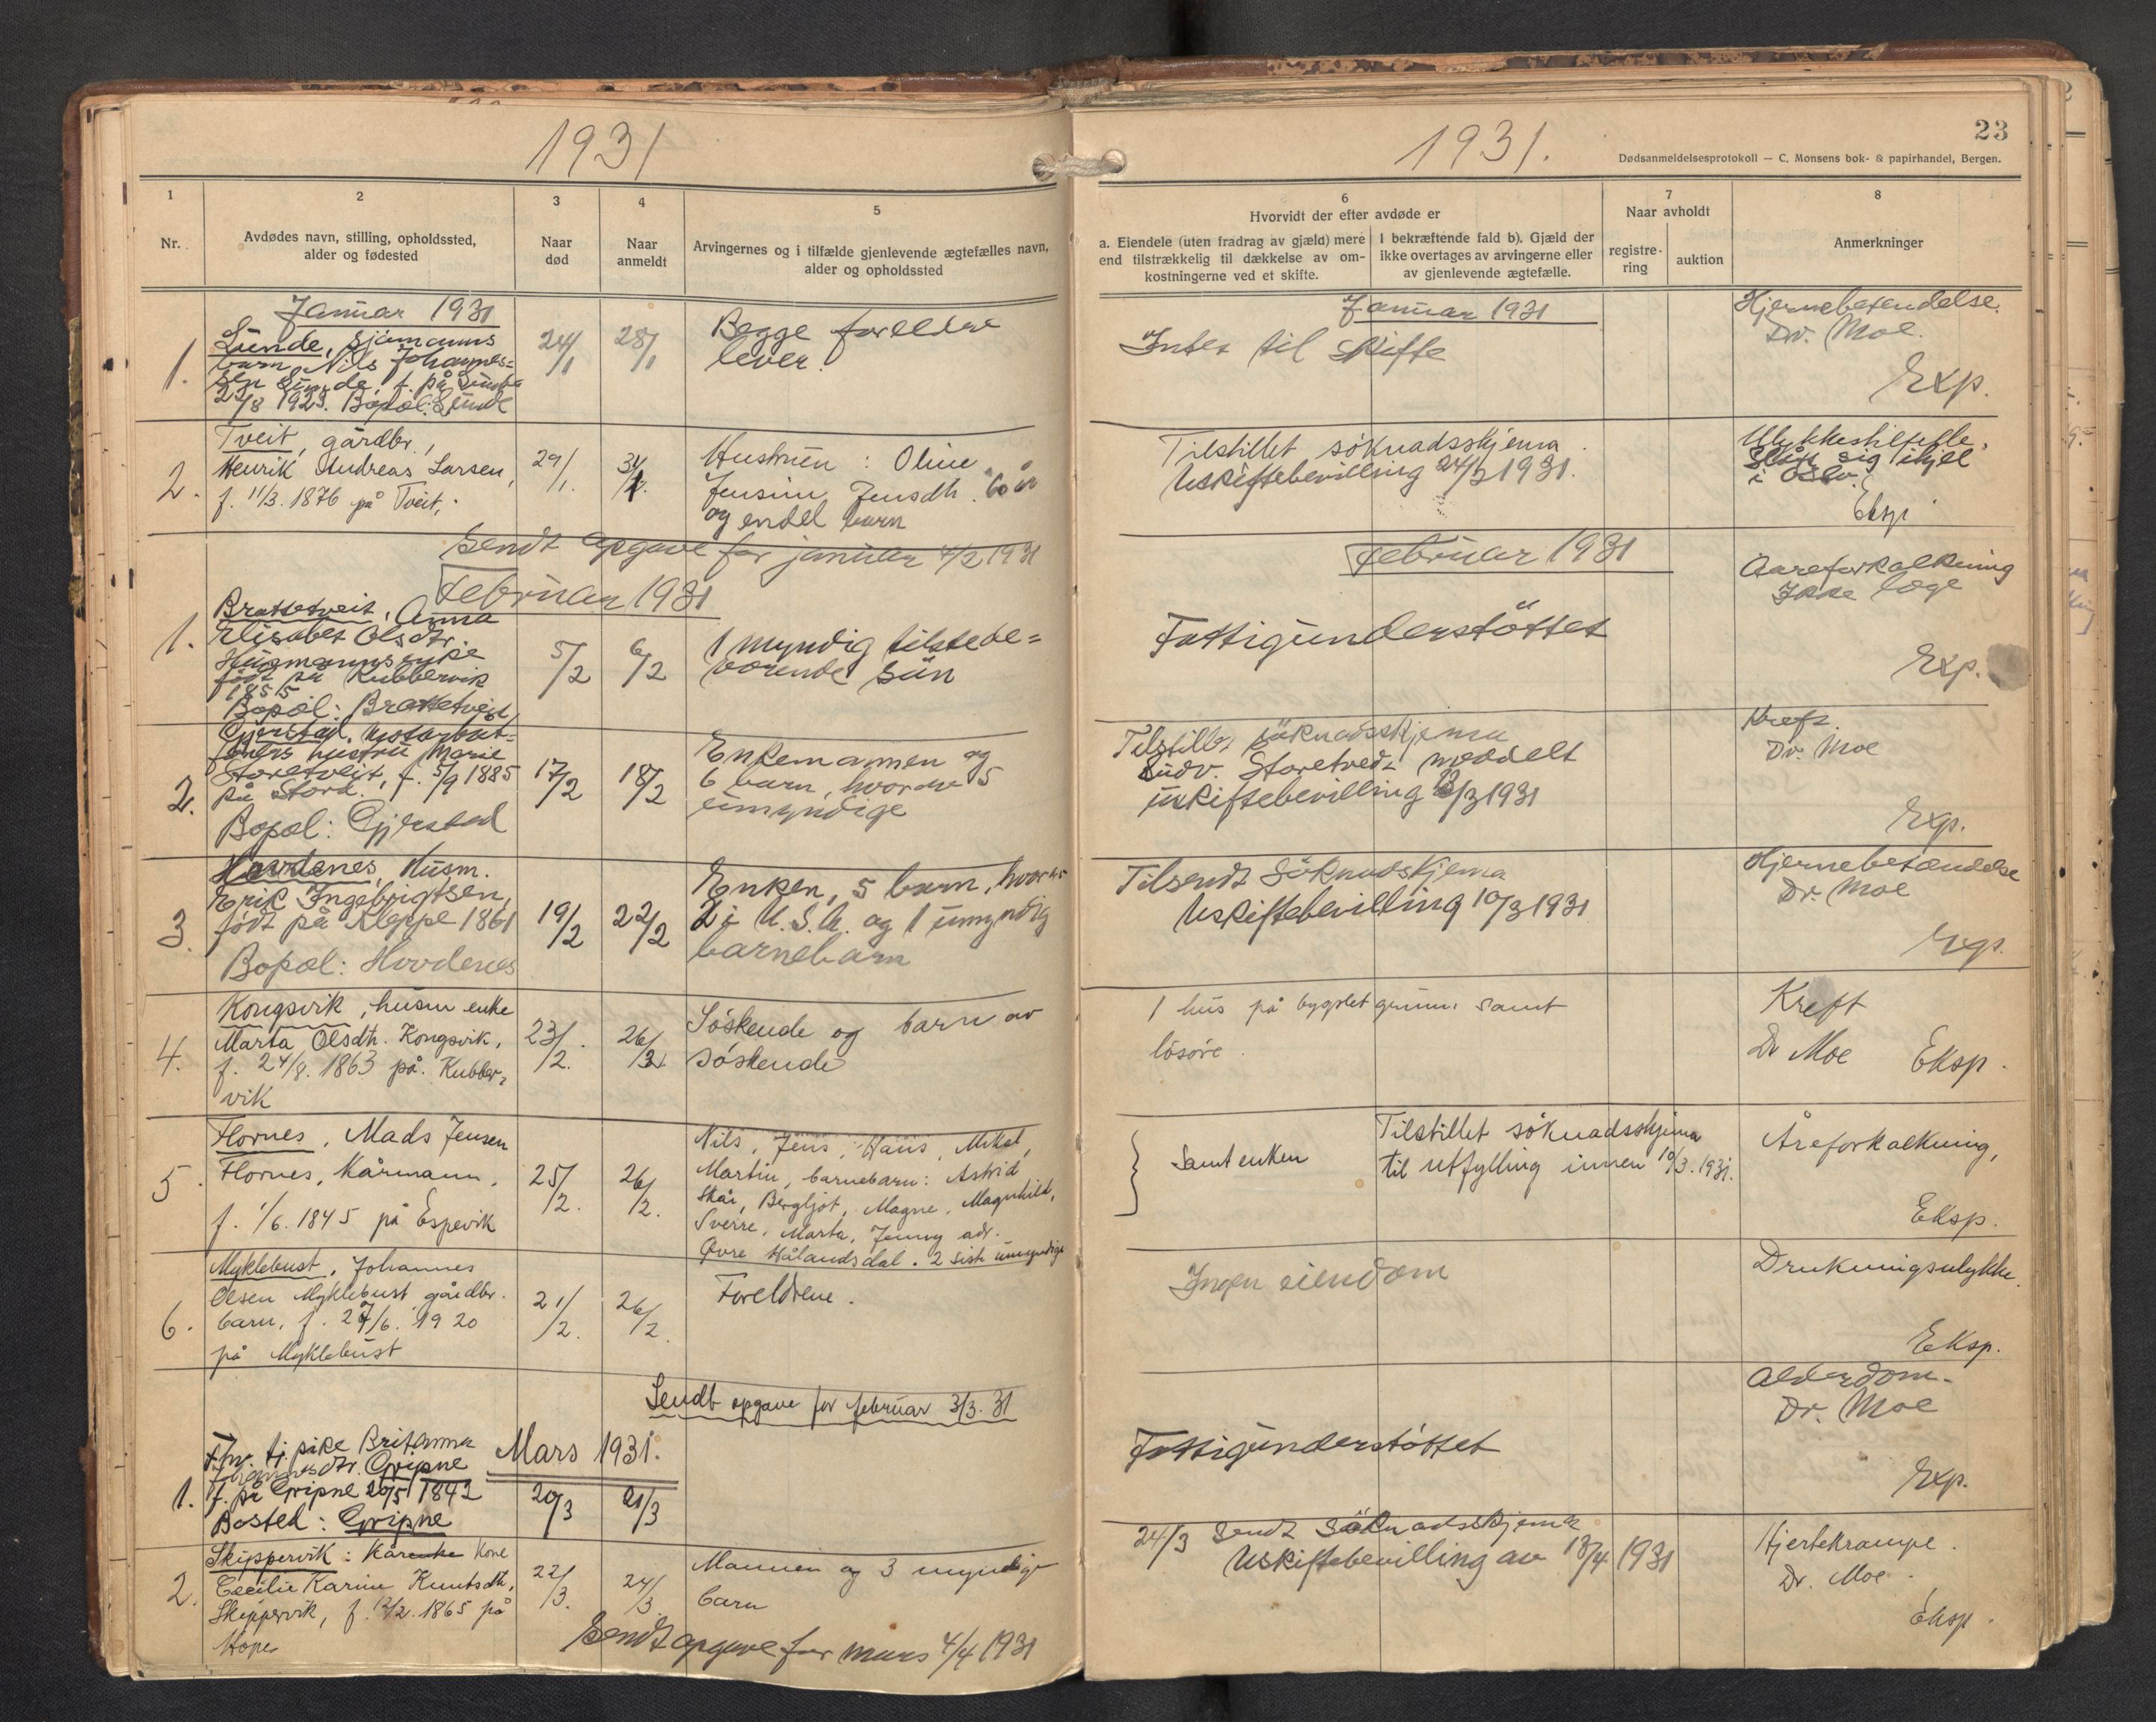 1931
1
2
3
4
5
Nr.
Avdødes navn, stilling, opholdssted,
alder og fødested
Naar
død
Naar
anmeldt
Arvingernes og i tilfælde gjenlevende ægtefælles navn,
alder og opholdssted
Januar 1931
1.
Lunde, Sjømanns
barn Nils Johannes=
sen Lunde, f. på Lunde
/8 1923. Bopæl: Lunde
24/1
28/1
Begge foreldre
lever.
2.
Tveit, gårdbr.,
Henrik Andreas Larsen,
f. 11/3. 1876 på Tveit.
29/1.
31/1.
Hustruen: Oline
Jensine Jensdtr. 60 år
og endel barn
Sendt opgave for januar 4/2 1931
Februar 1931
1.
Brattetveit, Anna
Elisabet Olsdtr.
Husmannsenke
født på Kubbervik
1855
Bopæl: Brattetveit
5/2
6/2
1 myndig tilstede=
værende sün
2.
Gjerstad, Motorbåt=
førers hustru Marie
Storetveit, f. 5/9 1885
på Stord.
Bopæl: Gjerstad
17/2
18/2
Enkemannen og
6 barn, hvorav 5
umyndige
3.
Hovdenes, Husm.
Erik Ingebrigtsen,
født på Kleppe 1861
Bopæl: Hovdenes
19/2
22/2
Enken, 5 barn, hvorav
2 i U.S.A. og 1 umyndig
barnebarn
4.
Kongsvik, husm enke
Marta Olsdtr. Kongsvik,
f. 24/8. 1863 på Kubber-
vik
23/2.
26/2.
Søskende og barn av
søskende
5.
Flornes, Mads Jensen
Flornes, Kårmann,
f. 1/6. 1845 på Espevik
25/2.
26/2.
Nils, Jens, Hans, Mikal,
Martin, barnebarn: Astrid
Skår, Bergljot, Magne, Magnhild,
Sverre, Marta, Jenny adr.
Øvre Hålandsdal. 2 siste umyndige
6.
Myklebust, Johannes
Olsen Myklebust gårdbr.
barn, f. 27/6. 1920
på Myklebust
21/2.
26/2.
Foreldrene.
Sendt opgave for februar 3/3. 31
Mars 1931.
1.
Fhv. tj. pike Britanna
Johannesdtr. Gripne
f. på Gripne 20/5 1842
Bosted: Gripne
20/3
21/3
2.
Skippervik: Kårenke Kone
Cecilie Karine Knutsdtr.
Skippervik, f. 12/2. 1865 på
Hope
22/3.
24/3
Mannen og 3 myndige
barn
Sendt opgave for mars 4/4 1931
1931.
23
Dødsanmeldelsesprotokoll — C. Monsens bok- & papirhandel, Bergen.
6
Hvorvidt der efter avdøde er
a. Eiendele (uten fradrag av gjæld) mere
end tilstrækkelig til dækkelse av om-
kostningerne ved et skifte.
I bekræftende fald b). Gjæld der
ikke overtages av arvingerne eller
av gjenlevende ægtefælle.
7
Naar avholdt
registre-
ring
auktion
8
Anmerkninger
Januar 1931
Intet til skifte
Hjernebetendelse.
Dr. Moe.
Exp.
Tilstillet søknadsskjema.
Uskiftebevilling 24/2 1931.
Ulykkestilfelle.
Slått sig ihjel
i Oslo.
Eksp
Februar 1931
Fattigunderstöttet
Aareforkalkning
Ikke læge
Exp.
Tilstillet söknadsskjema
Ludv. Storetvedt meddelt
uskiftebevilling /3 1931
Kreft.
Dr. Moe
Exp.
Tilsendt Söknadskjema
Uskiftebevilling 10/3 1931
Hjernebetændelse
Dr. Moe
Exp.
1 hus på bygslet grunn samt
løsøre.
Kreft
Dr Moe
Eksp.
Samt enken
Tilstillet søknadsskjema
til utfylling innen 10/3. 1931.
Åreforkalkning,
Eksp.
Ingen eiendom
Drukningsulykke.
Eksp.
Fattigunderstöttet
Alderdom.
Dr. Moe
Exp.
24/3 Sendt Söknadsskjema
Uskiftebevilling av 18/4 1931
Hjertekrampe.
Dr. Moe.
Eksp.